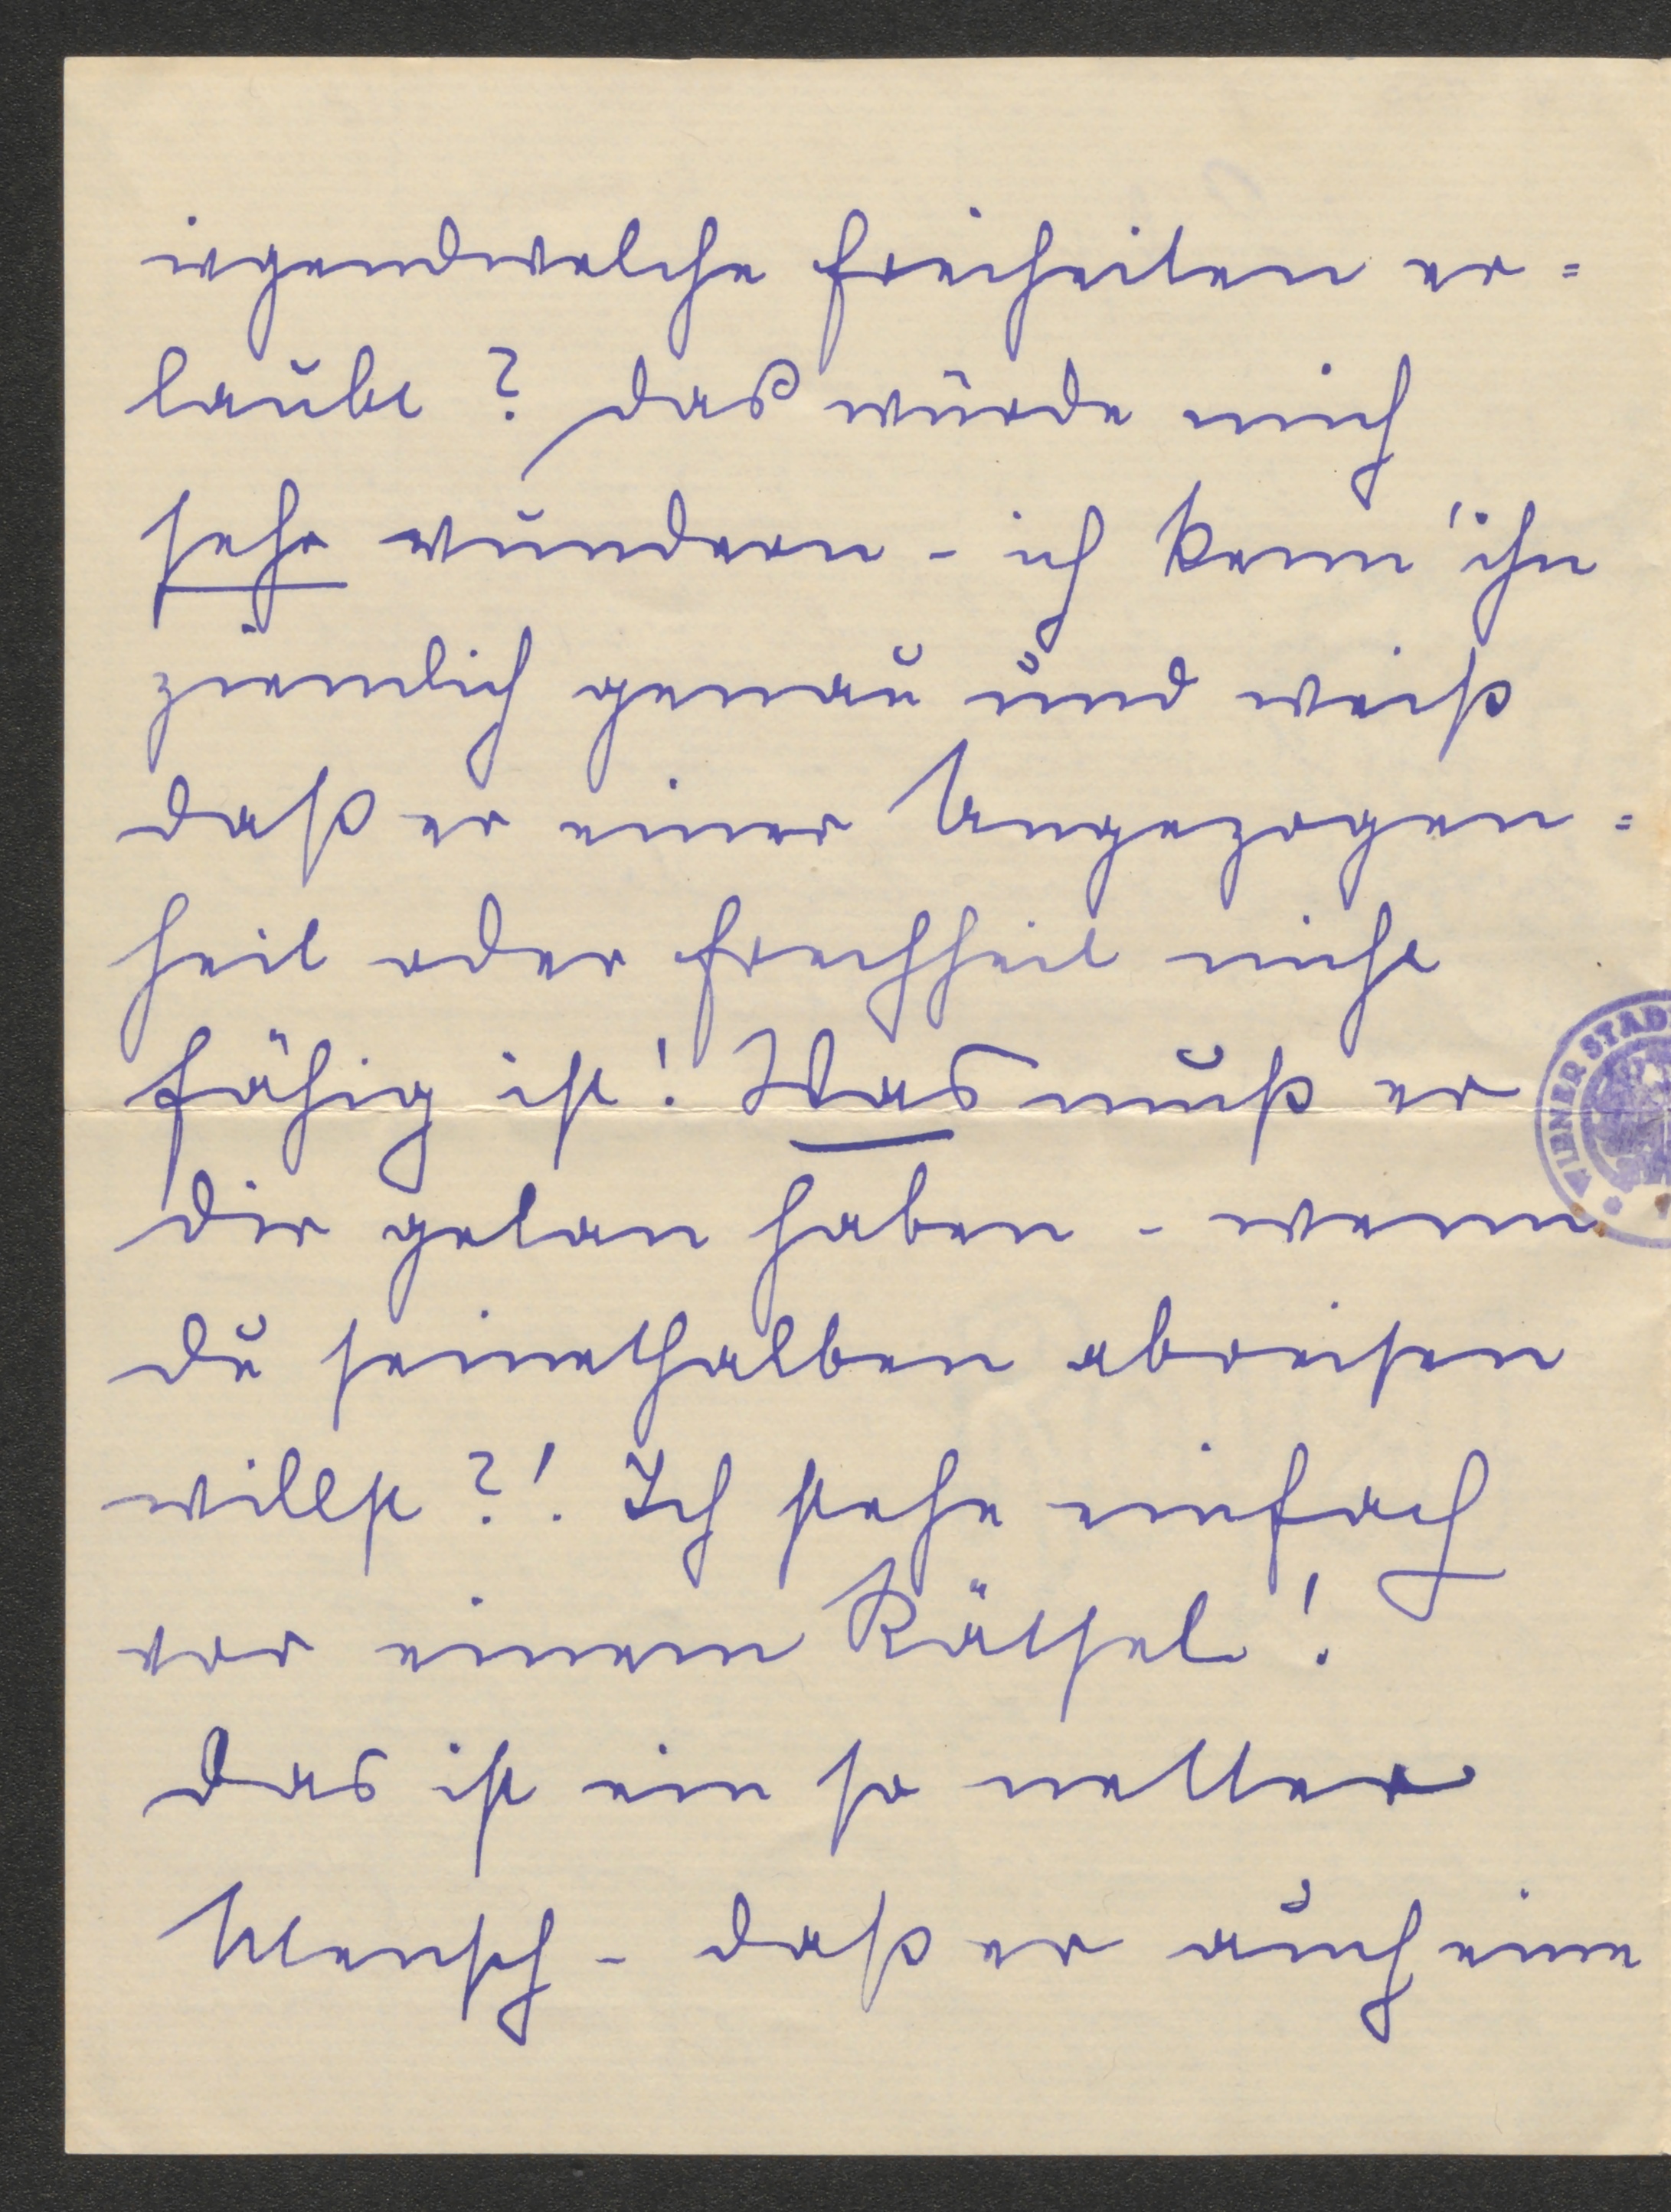 irgendwelche Freiheiten er=
laubt? Das würde mich
sehr wundern - ich kenn' ihn
ziemlich genau und weiß
daß er einer Ungezogen=
heit oder Frechheit nicht
fähig ist! Was muß er
Dir getan haben - wenn
Du seinethalben abreisen
willst?! Ich stehe einfach
vor einem Rätsel!
Das ist ein so netter
Mensch - daß er auch eine
WIENER STAD